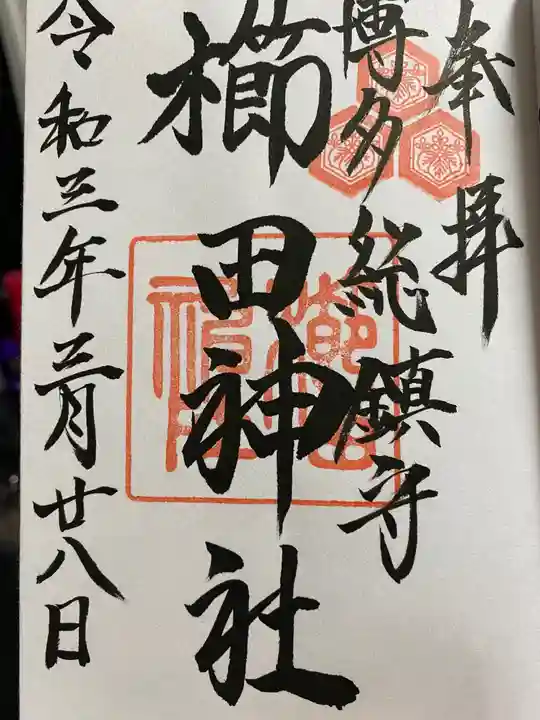 奉拝
博多総鎮守
櫛田神社
令和三年三月廿八日
櫛田
神社